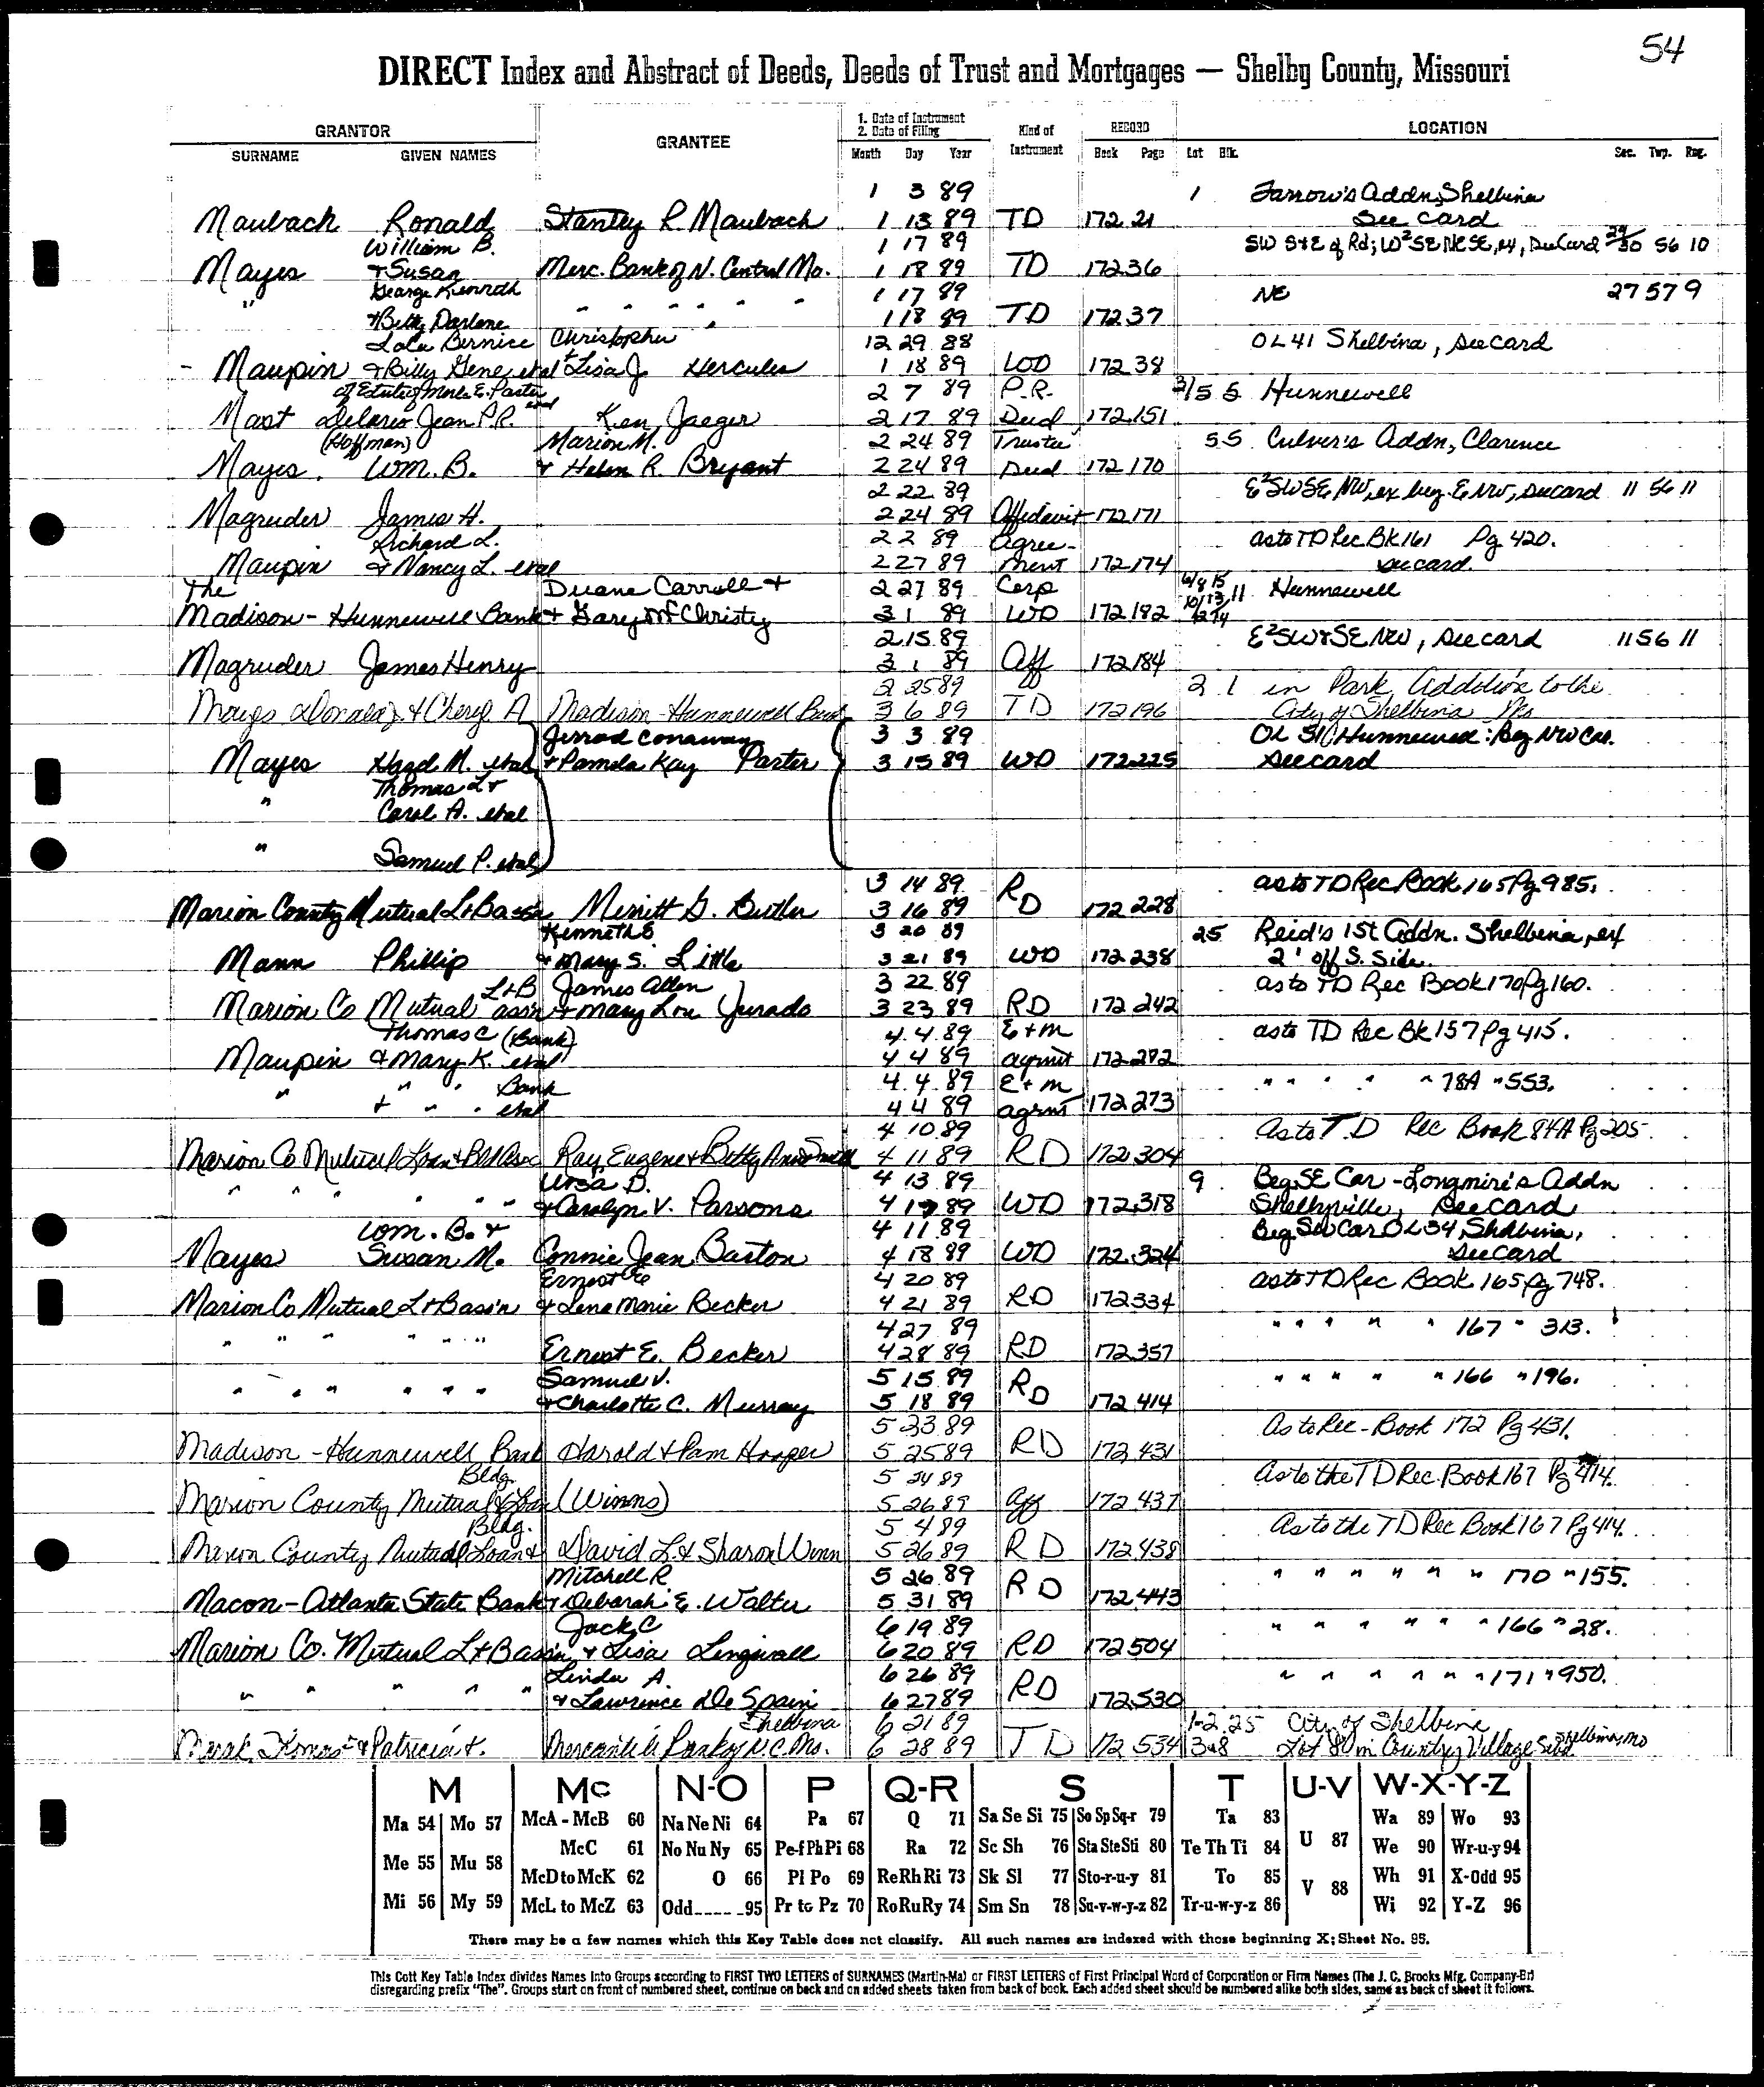 54
DIRECT Index and Abstract of Deeds, Deeds of Trust and Mortgages — Shelby County, Missouri
GRANTOR
SURNAME GIVEN NAMES
GRANTEE
1. Date of Instrument
2. Date of Filing
Month Day Year
Kind of
Instrument
RECORD
Book Page
LOCATION
Lot Blk. Sec. Twp. Rng.
1 3 89 1 Farrow's Addn, Shelbina
Maubach Ronald Stanley R. Maubach 1 13 89 TD 172 21 See Card
William B. 1 17 89 SW S&E of Rd; W²SE NESE, ex, See Card 29/30 56 10
Mayes & Susan Merc. Bank of N. Central Mo. 1 18 89 TD 172 36
George Kenneth 1 17 89 NE 27 57 9
" & Betty Darlene " " " " " 1 18 89 TD 172 37
Lola Bernice Christopher 12 29 88 OL 41 Shelbina, See card
- Maupin & Billy Gene etal & Lisa J. Hercules 1 18 89 WD 172 38
of Estate of Merle E. Parter 2 7 89 P.R. 5 Hunnewell
Mast Deloris Jean P.R. Ken Jaeger 2 17 89 Deed 172 151
(Hoffman) Marion M. 2 24 89 Trustee 5 5 Culver's Addn, Clarence
Mayes. Wm. B. & Helen R. Bryant 2 24 89 Deed 172 170
2 22 89 E²SWSE NW, ex beg. E NW, See card 11 56 11
Magruder James H. 2 24 89 Affidavit 172 171
Richard L. 2 2 89 Agree- as to TD Rec Bk 161 Pg 420.
Maupin & Nancy L. etal 2 27 89 ment 172 174 see card.
The Duane Carroll & 2 27 89 Corp 11 Hunnewell
Madison - Hunnewell Bank & Gary McChristy 3 1 89 WD 172 182
2 15 89 E²SW&SE NW, See card 11 56 11
Magruder James Henry 3 1 89 Aff 172 184
2 25 89 2 1 in Park Addition to the
Mayes Donald J & Cheryl A Madison-Hunnewell Bank 3 6 89 TD 172 196 City of Shelbina Mo
Jerrod Conaway 3 3 89 OL 51 Hunnewell: Beg NW Cor.
Mayes M. etal & Pamela Kay Parter 3 15 89 WD 172 225 see card
Thomas L &
" Carol A. etal
" Samuel P. etal
3 14 89 as to TD Rec Book 165 Pg 985.
Marion County Mutual L&B ass'n Merritt G. Butler 3 16 89 RD 172 228
Kenneth E 3 20 89 25 Reid's 1st Addn. Shelbina, ex
Mann Phillip & Mary S. Little 3 21 89 WD 172 238 2' off S. Side.
L&B James Allen 3 22 89 as to TD Rec Book 170 Pg 160.
Marion Co Mutual ass'n & Mary Lou Jurado 3 23 89 RD 172 242
Thomas C (Bank) 4 4 89 E+M as to TD Rec Bk 157 Pg 415.
Maupin & Mary K. etal 4 4 89 agrmt 172 272
" " " Bank 4 4 89 E+M " " " " " 78A " 553.
& " " etal 4 4 89 agrmt 172 273
4 10 89 As to T.D Rec Book 84A Pg 205.
Marion Co Mutual Loan & Bld Assc Ray Eugene & Betty Ann Smith 4 11 89 RD 172 304
Ursa D. 4 13 89 9 Beg SE Cor - Longmire's Addn
" " " " " " & Carolyn V. Parsons 4 17 89 WD 172 318 Shelbyville, See card
Wm. B. & 4 11 89 Beg SW Cor OL 34, Shelbina,
Mayes Susan M. Connie Jean Barton 4 18 89 WD 172 324 See Card
Ernest E 4 20 89 as to TD Rec Book 165 Pg 748.
Marion Co Mutual L&B ass'n & Lena Marie Becker 4 21 89 RD 172 334
4 27 89 " " " " " 167 " 313.
" " " " " " Ernest E. Becker 4 28 89 RD 172 357
Samuel V. 5 15 89 " " " " " 166 " 196.
" " " " " " & Charlotte C. Murray 5 18 89 RD 172 414
5 23 89 As to Rec - Book 172 Pg 431.
Madison - Hunnewell Bank Harold & Pam Hooper 5 25 89 RD 172 431
Bldg. 5 24 89 As to the TD Rec. Book 167 Pg 414.
Marion County Mutual & Loan (Winns) 5 26 89 Aff 172 437
Bldg. 5 4 89 As to the TD Rec Book 167 Pg 414.
Marion County Mutual Loan & David L. & Sharon Winn 5 26 89 RD 172 438
Mitchell R 5 26 89 " " " " " " 170 " 155.
Macon-Atlanta State Bank & Deborah E. Walter 5 31 89 RD 172 443
Jack C 6 19 89 " " " " " " 166 " 28.
Marion Co. Mutual L&B ass'n & Lisa Lingwall 6 20 89 RD 172 504
Linda A. 6 26 89 " " " " " " 171 " 950.
" " " " " & Lawrence De Spain 6 27 89 RD 172 530
Shelbina 6 21 89 1-2 25 City of Shelbina
& Patricia Mercantile Bank of N.C. Mo. 6 28 89 TD 172 534 3&8 Lot 80 in Country Village Subd Shelbina, Mo
M Mc N-O P Q-R S T U-V W-X-Y-Z
Ma 54 Mo 57 McA - McB 60 Na Ne Ni 64 Pa 67 Q 71 Sa Se Si 75 So Sp Sq-r 79 Ta 83 U 87 Wa 89 Wo 93
Me 55 Mu 58 McC 61 No Nu Ny 65 Pe-f Ph Pi 68 Ra 72 Sc Sh 76 Sta Ste Sti 80 Te Th Ti 84 V 88 We 90 Wr-u-y 94
Mi 56 My 59 McD to McK 62 O 66 Pl Po 69 Re Rh Ri 73 Sk Sl 77 Sto-r-u-y 81 To 85 Wh 91 X-Odd 95
McL to McZ 63 Odd____95 Pr to Pz 70 Ro Ru Ry 74 Sm Sn 78 Su-v-w-y-z 82 Tr-u-w-y-z 86 Wi 92 Y-Z 96
There may be a few names which this Key Table does not classify. All such names are indexed with those beginning X; Sheet No. 95.
This Cott Key Table Index divides Names Into Groups according to FIRST TWO LETTERS of SURNAMES (Martin-Ma) or FIRST LETTERS of First Principal Word of Corporation or Firm Names (The J. C. Brooks Mfg. Company-Br)
disregarding prefix "The". Groups start on front of numbered sheet, continue on back and on added sheets taken from back of book. Each added sheet should be numbered alike both sides, same as back of sheet it follows.